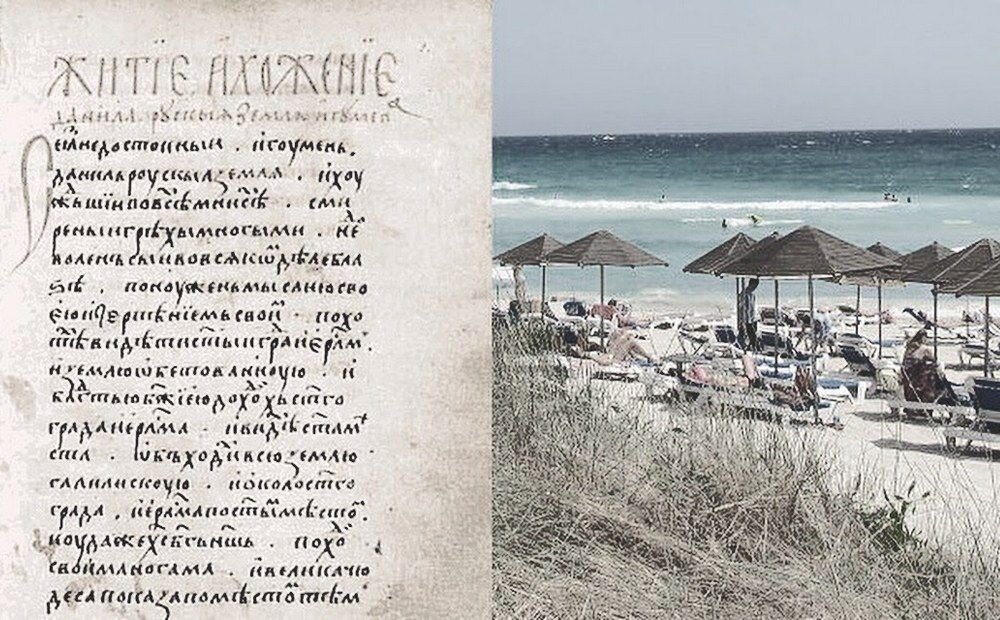 ЖИТЇЕ ИХОЖЕНЇЕ
данила рускыя земли игумена
Се азъ недостоиныи . игоумень .
данилъ роускыа земля . ихоу
жьшїи въ всѣх мнисѣ . сми
реныи грѣхы многыми . не
доволенъ сыи во всякѡ дѣлѣ бла
зѣ . поноуженъ мыслию сво
єю и нетерпѣнїемь свои . похо
тѣ видѣти стыи град иерлм .
и землю ѡбетованноую . и
блгтью бжїєю доходхъ стго
града иерлма . и видѣ стаа мѣ
ста . ѡбъходи всю землю
галилискоую . и ѡколо стго
града . иерлма по стым мѣсто .
коудаже хс бъ нашь . похо
своима ногама . и велика чю
деса показа по мѣсто тѣм